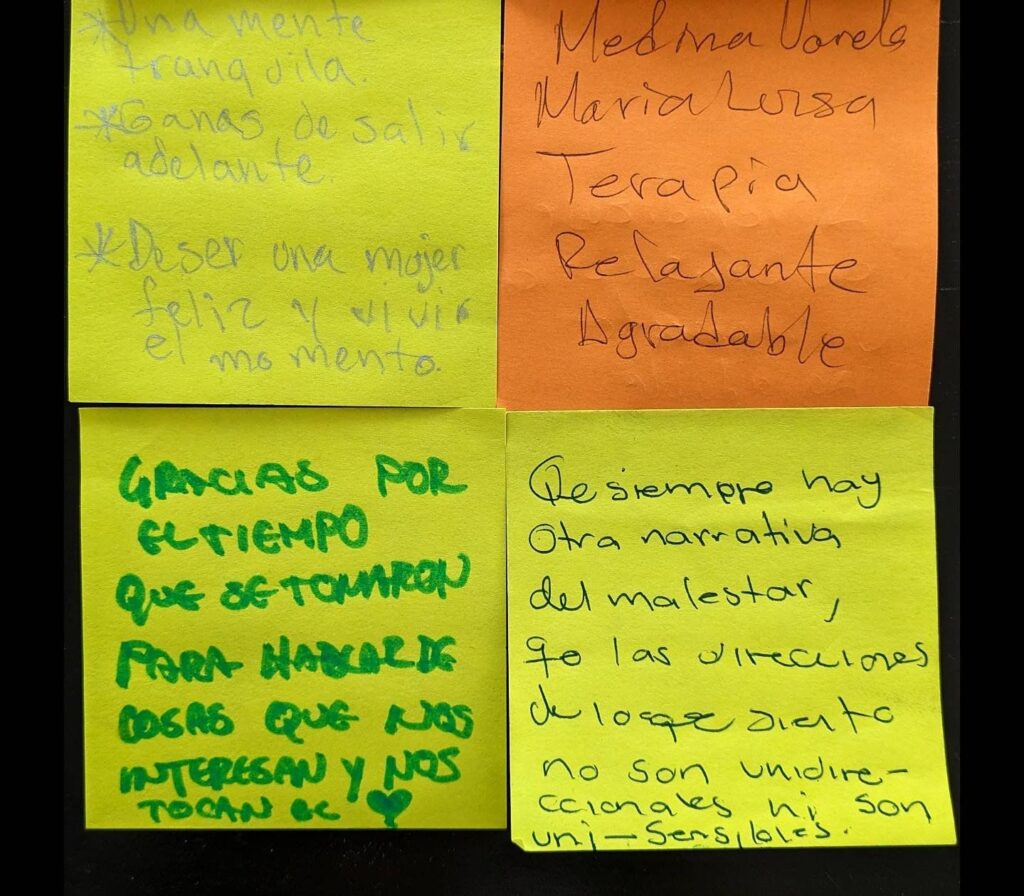 *Una mente
tranquila.
*Ganas de salir
adelante.
*Deser una mujer
feliz y vivir
el momento.
Medina Varela
Maria Luisa
Terapia
Relajante
Agradable
GRACIAS POR
EL TIEMPO
QUE SE TOMARON
PARA HABLAR DE
COSAS QUE NOS
INTERESAN Y NOS
TOCAN EL ♥
Qe siempre hay
Otra narrativa
del malestar,
qe las direcciones
de lo qe siento
no son unidire-
ccionales ni son
uni-sensibles.